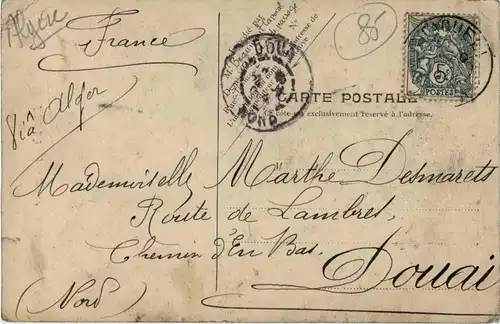 Algérie
France
85
Viâ Alger
DOUAI
NORD
5c
POSTES
CARTE POSTALE
Côté exclusivement réservé à l'adresse.
Mademoiselle Marthe Desmarets
Route de Lambres,
Chemin d'En Bas.
Douai
(Nord)